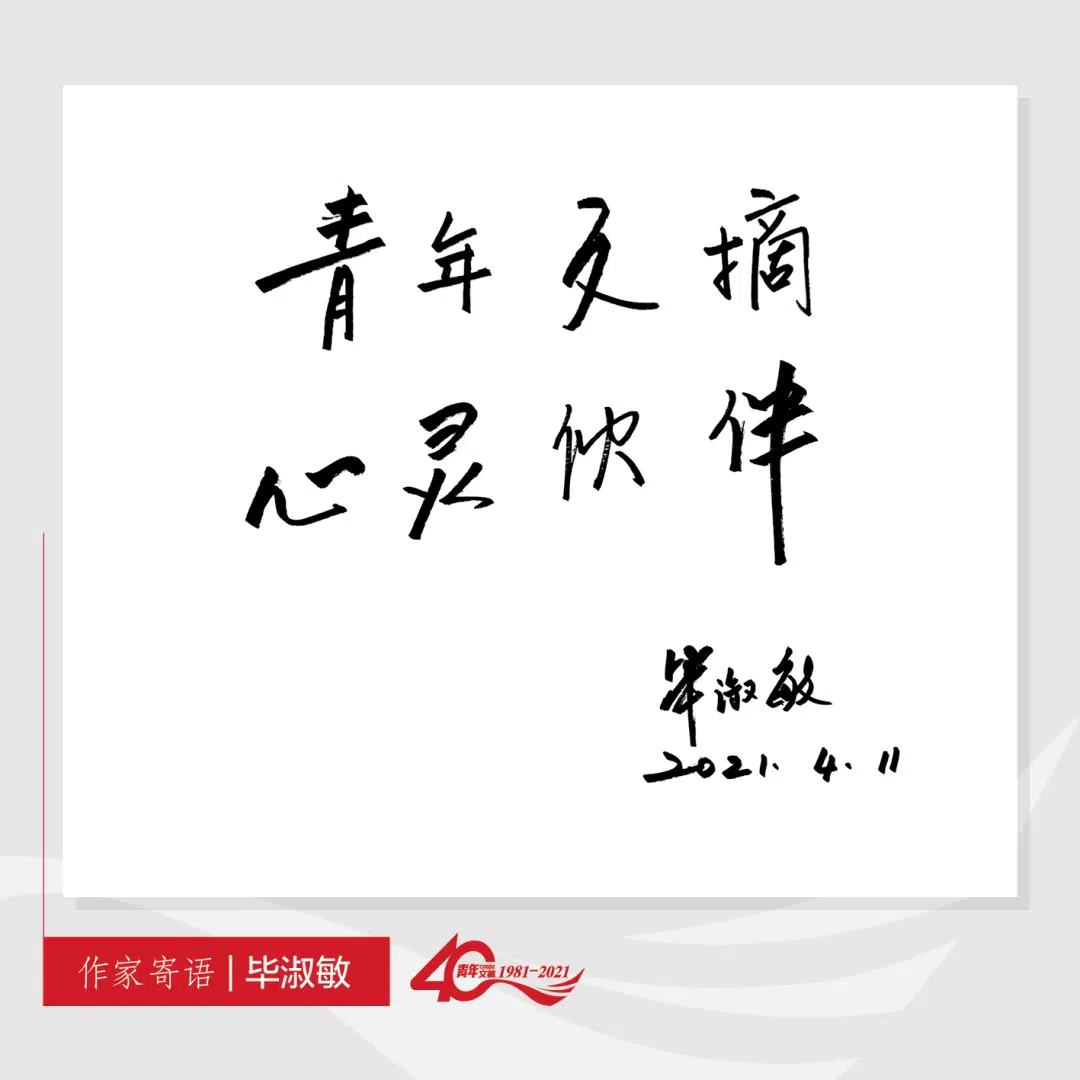 青年文摘
心灵伙伴
毕淑敏
2021.4.11
作家寄语|毕淑敏
40 青年文摘 1981-2021